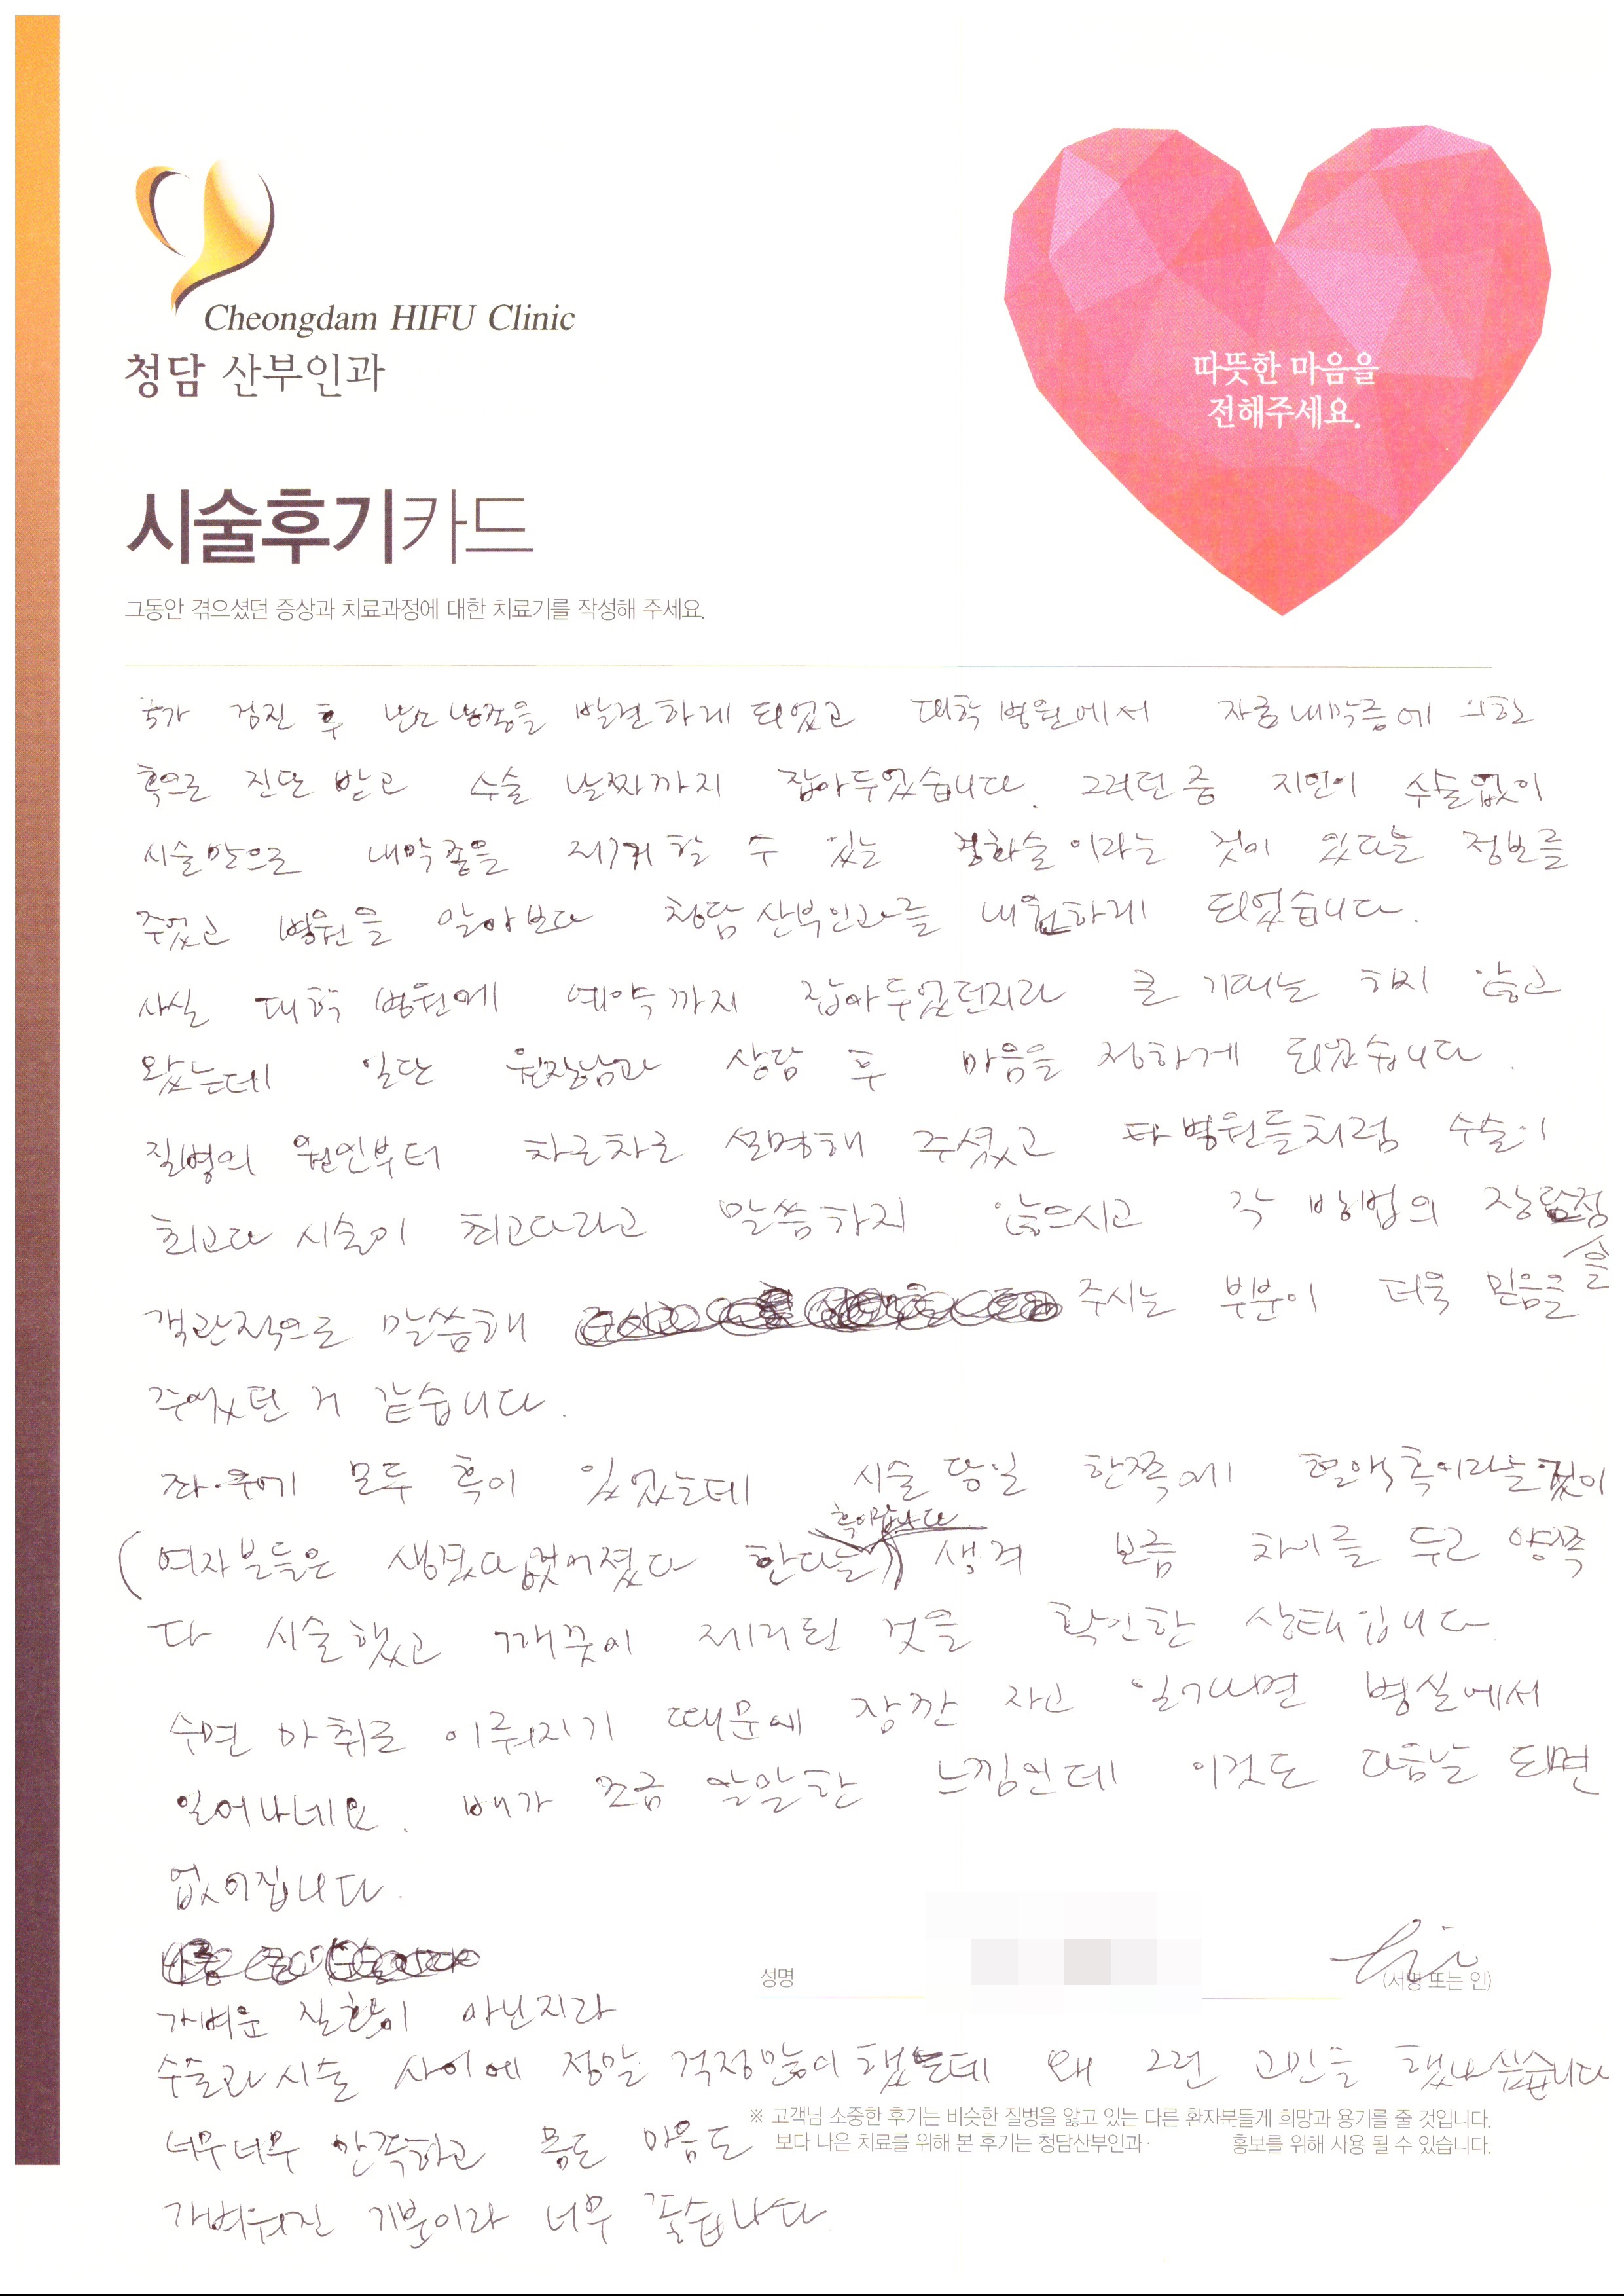 Cheongdam HIFU Clinic
청담 산부인과
따뜻한 마음을
전해주세요.
시술후기카드
그동안 겪으셨던 증상과 치료과정에 대한 치료기를 작성해 주세요.
국가 검진 후 난소낭종을 발견하게 되었고 대학병원에서 자궁내막증에 의한
혹으로 진단 받고 수술 날짜까지 잡아두었습니다. 그러던 중 지인이 수술없이
시술만으로 내막종을 제거할 수 있는 경화술이라는 것이 있다는 정보를
주었고 병원을 알아보다 청담산부인과를 내원하게 되었습니다.
사실 대학병원에 예약까지 잡아두었던지라 큰 기대는 하지 않고
왔는데 일단 원장님과 상담 후 마음을 정하게 되었습니다.
질병의 원인부터 차근차근 설명해 주셨고 타병원들처럼 수술이
최고다 시술이 최고다라고 말씀하지 않으시고 각 방법의 장단점을
객관적으로 말씀해 주시는 부분이 더욱 믿음을
주었던 거 같습니다.
좌·우에 모두 혹이 있었는데 시술 당일 한쪽에 혈액혹이라는것이
(여자분들은 생겼다없어졌다 한다는 혹이랍니다) 생겨 보름 차이를 두고 양쪽
다 시술했고 깨끗이 제거된 것을 확인한 상태입니다.
수면 마취로 이뤄지기 때문에 잠깐 자고 일어나면 병실에서
일어나네요. 배가 조금 알알한 느낌인데 이것도 다음날 되면
없어집니다.
성명
(서명 또는 인)
가벼운 질환이 아닌지라
수술과 시술 사이에 정말 걱정많이 했는데 왜 그런 고민을 했나싶습니다
※ 고객님 소중한 후기는 비슷한 질병을 앓고 있는 다른 환자분들게 희망과 용기를 줄 것입니다.
너무너무 만족하고 몸도 마음도
보다 나은 치료를 위해 본 후기는 청담산부인과· 홍보를 위해 사용 될 수 있습니다.
가벼워진 기분이라 너무 좋습니다